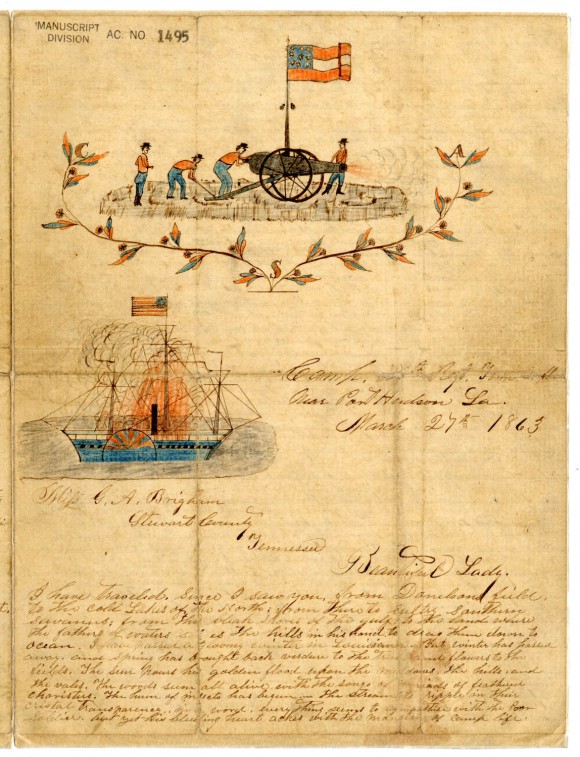 MANUSCRIPT
DIVISION AC. NO 1495
C A
S
Camp, th Regt Tenn
Near Port Hudson La.
March 27th 1863
Miss G. A. Brigham
Stewart County
Tennessee
Beautiful Lady.
I have traveled, since I saw you, from Donelsons field,
to the cold Lakes of the North; from there to sultry Southern
Savannas, from the bleak shore of the gulf to the land were
the fathers of waters the hills in his hand to drag them down to
ocean. I have passed a gloomy winter in Louisiana. That winter has passed
away, and spring has brought back verdure to the trees and flowers to the
fields. The sun pours his golden flood upon the meadows, the hills, and
the vales. The woods seem all alive with the songs of feathered
charisters. The hum of insects has begun. The Streams ripple in their
cristal transparence. In a word, every thing seems to sympathise with the poor
soldier, but yet his bleeding heart aches with the of camp life.